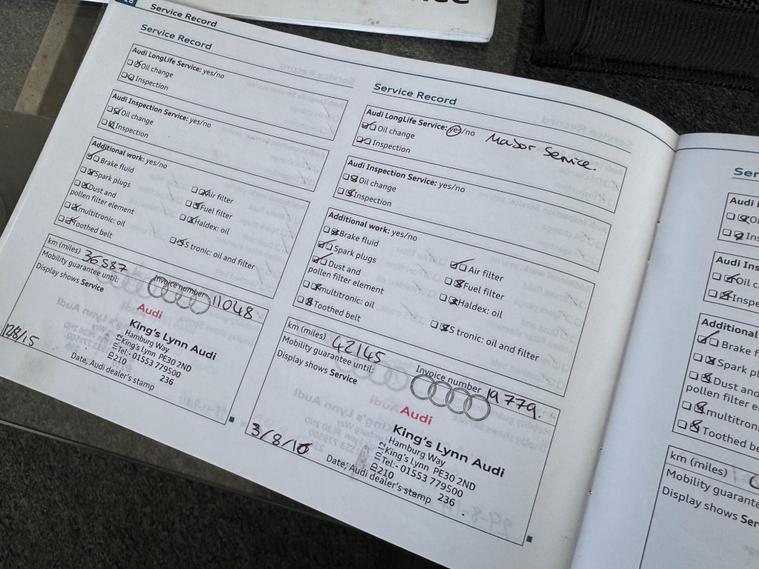 Service Record
Service Record
Audi LongLife Service: yes/no
Oil change
Inspection
Audi Inspection Service: yes/no
Oil change
Inspection
Additional work: yes/no
Brake fluid
Spark plugs
Dust and
pollen filter element
multitronic: oil
Toothed belt
Air filter
Fuel filter
Haldex: oil
S tronic: oil and filter
km (miles) 36587
Invoice number 11048
Mobility guarantee until:
Display shows Service
Audi
King's Lynn Audi
Hamburg Way
King's Lynn PE30 2ND
Tel:- 01553 779500
210 236
Date, Audi dealer's stamp
Service Record
Audi LongLife Service: yes/no Major Service.
Oil change
Inspection
Audi Inspection Service: yes/no
Oil change
Inspection
Additional work: yes/no
Brake fluid
Spark plugs
Dust and
pollen filter element
multitronic: oil
Toothed belt
Air filter
Fuel filter
Haldex: oil
S tronic: oil and filter
km (miles) 42145
Invoice number 19779.
Mobility guarantee until:
Display shows Service
Audi
King's Lynn Audi
Hamburg Way
King's Lynn PE30 2ND
Tel:- 01553 779500
210 236
Date, Audi dealer's stamp
Brake f
Spark p
Dust and
pollen filter e
multitron
Toothed be
km (miles)
Mobility guarantee
Display shows Ser